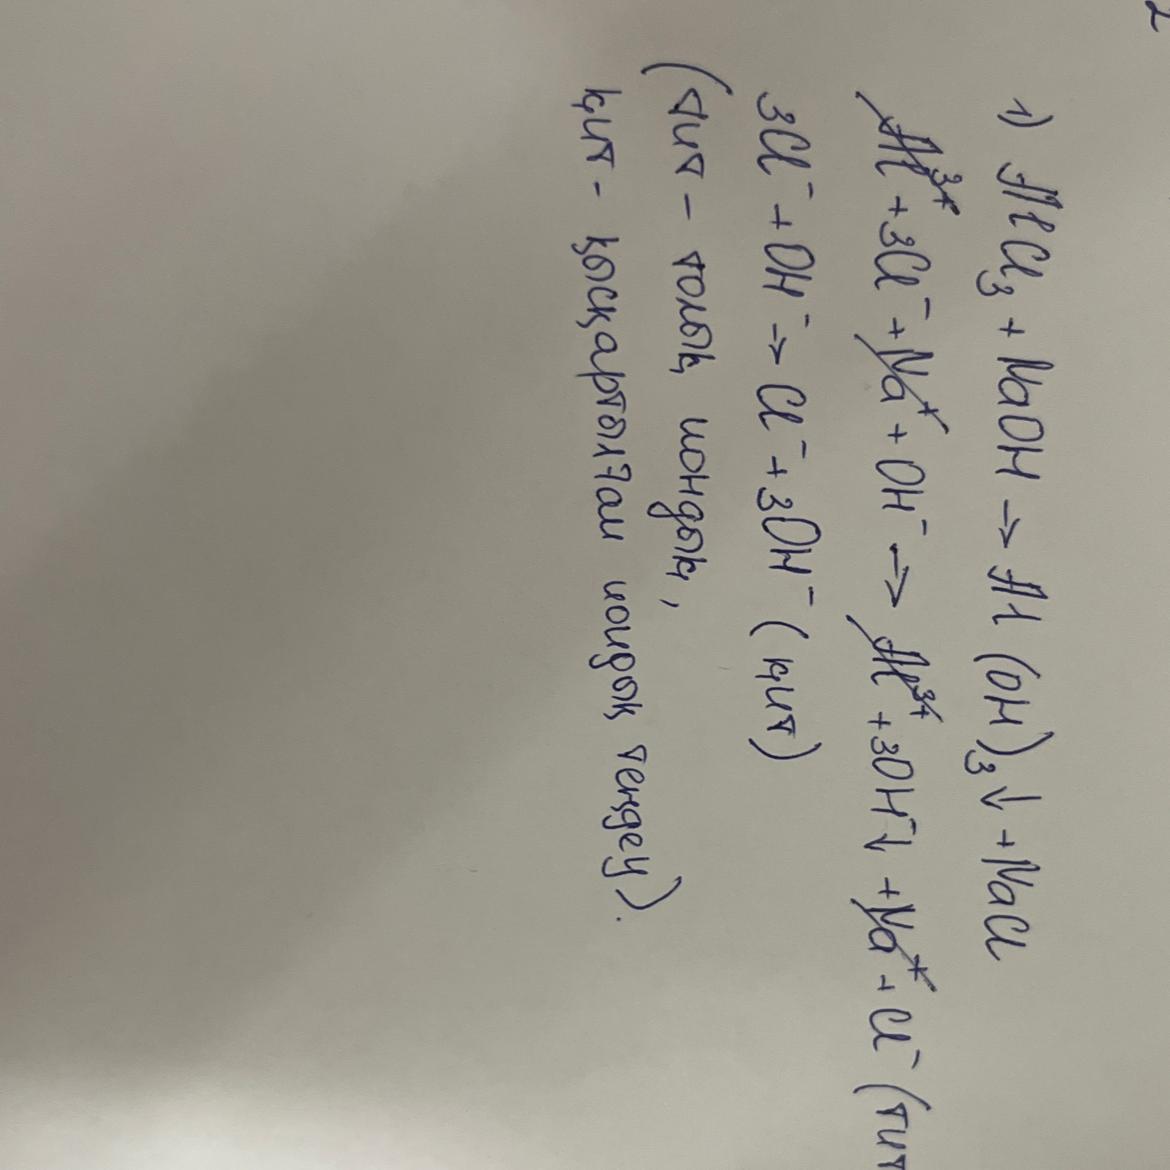 2
1) AlCl₃ + NaOH → Al(OH)₃↓ + NaCl
Al³⁺ + 3Cl⁻ + Na⁺ + OH⁻ → Al³⁺ + 3OH⁻↓ + Na⁺ + Cl⁻ (тит
3Cl⁻ + OH⁻ → Cl⁻ + 3OH⁻ (қит)
(тит - толық иондық,
қит - қысқартылған иондық теңдеу).